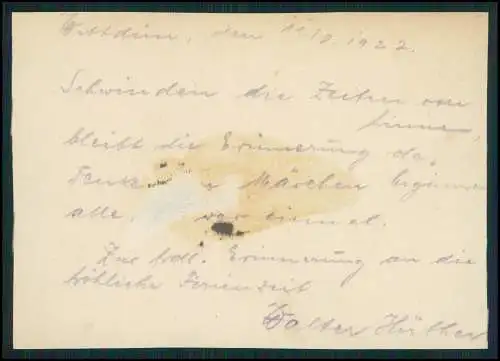 Wittdün, den 11/7. 1922.
Schwinden die Zeiten von
hinnen,
bleibt die Erinnerung da.
Denk Märchen beginnen
alle, war einmal.
Zur frdl. Erinnerung an die
fröhliche Ferienzeit
Walter